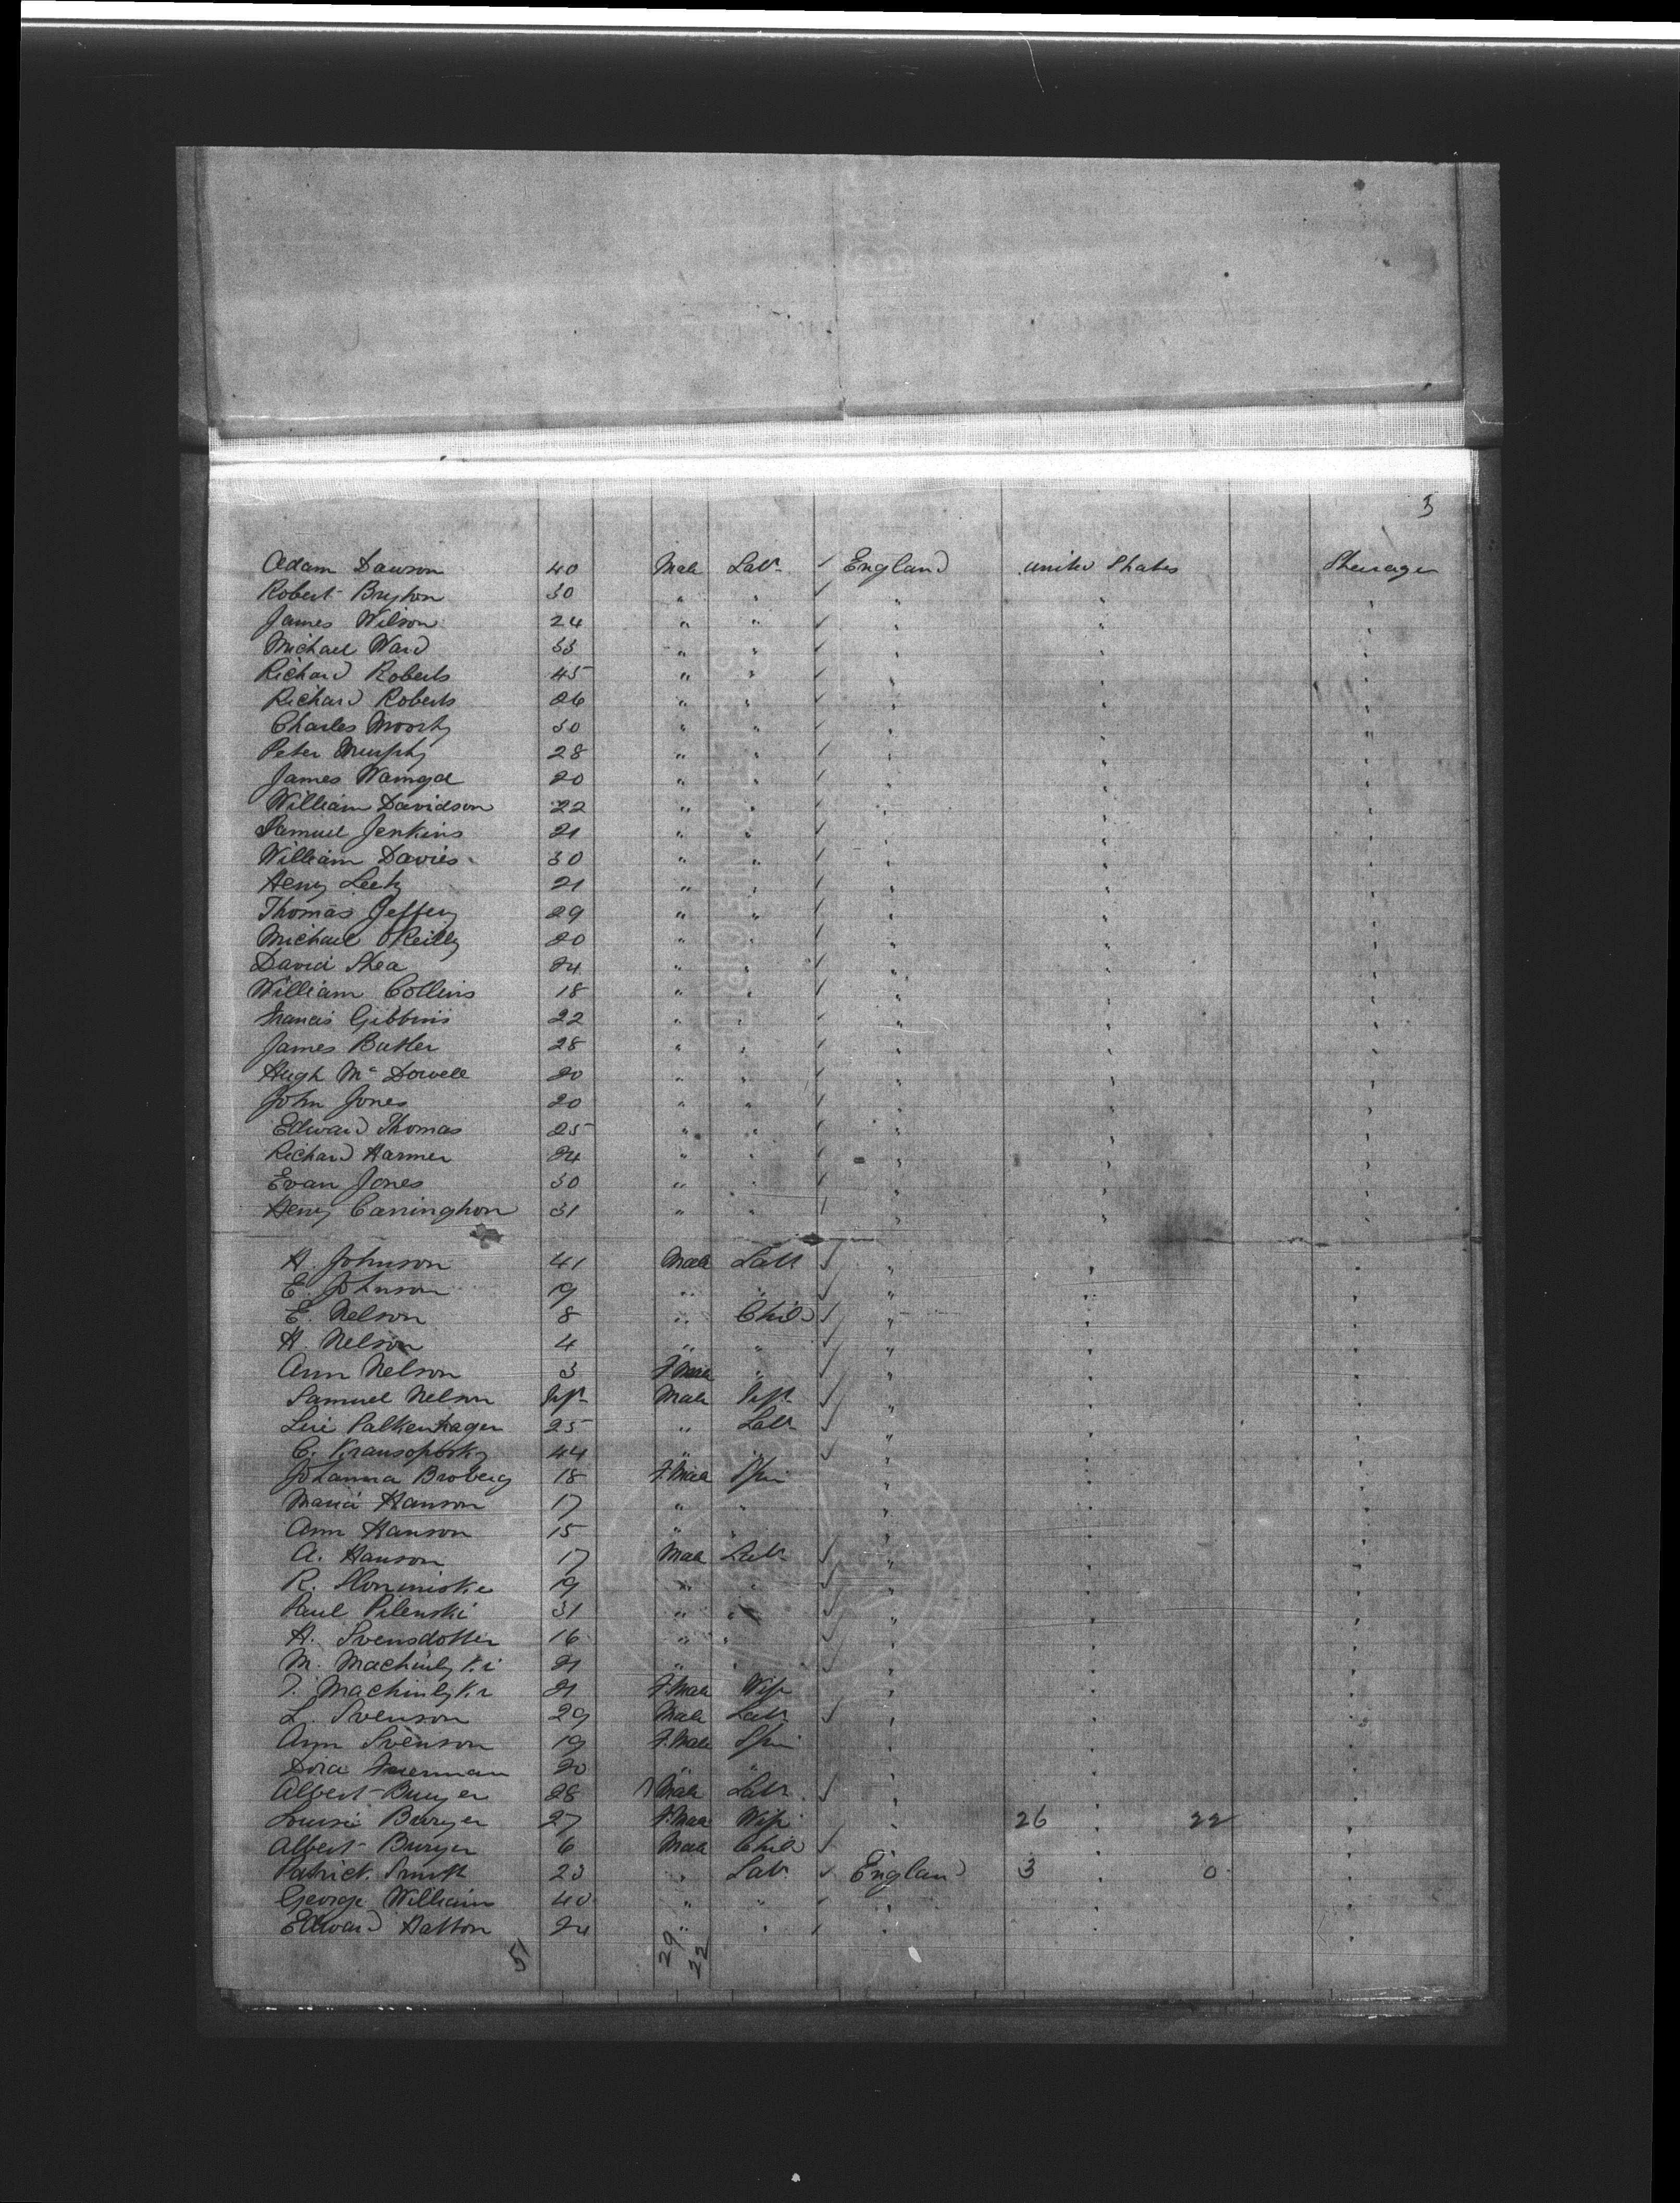 3
Adam Dawson 40 Male Labr ✓ England United States Steerage
Robert Bryton 30 " " ✓ " " "
James Wilson 24 " " ✓ " " "
Michael Ward 33 " " ✓ " " "
Richard Roberts 45 " " ✓ " " "
Richard Roberts 26 " " ✓ " " "
Charles 30 " " ✓ " " "
Peter Murphy 28 " " ✓ " " "
James 20 " " ✓ " " "
William Davidson 22 " " ✓ " " "
Samuel Jenkins 21 " " ✓ " " "
William Davies 30 " " ✓ " " "
Henry 21 " " ✓ " " "
Thomas Jeffery 29 " " ✓ " " "
Michael OReilly 20 " " ✓ " " "
David Shea 24 " " ✓ " " "
William Collins 18 " " ✓ " " "
Francis Gibbins 22 " " ✓ " " "
James Butler 28 " " ✓ " " "
Hugh Mc Dowell 20 " " ✓ " " "
John Jones 20 " " ✓ " " "
Edward Thomas 25 " " ✓ " " "
Richard Harmer 24 " " ✓ " " "
Evan Jones 30 " " ✓ " " "
Henry Carrington 31 " " ✓ " " "
H. Johnson 41 Male Labr ✓ " " "
E. Johnson 19 " " ✓ " " "
E. Nelson 8 " Child ✓ " " "
H. Nelson 4 " " ✓ " " "
Ann Nelson 3 F.Male " ✓ " " "
Samuel Nelson Inft Male Inft ✓ " " "
Palkenhagen 25 " Labr ✓ " " "
C. 44 " " ✓ " " "
Johanna Broberg 18 F.Male Spin " " "
Maria Hanson 17 " " " " "
Ann Hanson 15 " " " " "
A. Hanson 17 Male Labr ✓ " " "
R. 19 " " ✓ " " "
Paul Pilenski 31 " " ✓ " " "
H. Svensdotter 16 " " ✓ " " "
M. 21 " " ✓ " " "
21 F.Male Wife " " "
L. Svenson 29 Male Labr ✓ " " "
Ann Svenson 19 F.Male Spin " " "
Dora 20 " " " " "
Albert Burger 28 Male Labr ✓ " " "
Louise Burger 27 F.Male Wife " 26 " 22 "
Albert Burger 6 Male Child ✓ " " "
Patrick Smith 23 " Labr ✓ England 3 " 0 "
George William 40 " " ✓ " " "
Edward Hatton 24 " " ✓ " " "
51 29 22